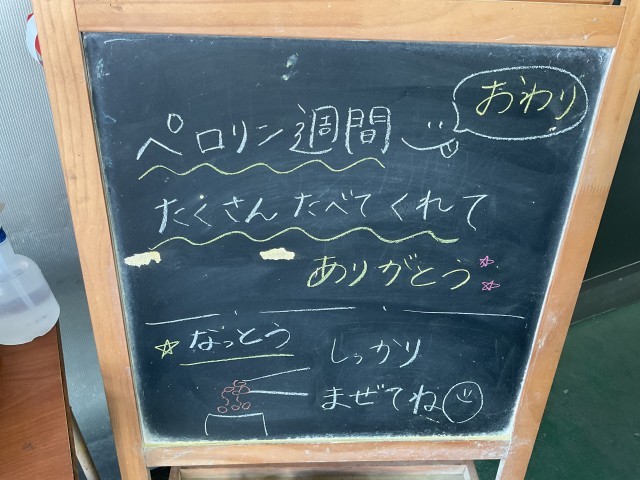 おわり
ペロリン週間
たくさんたべてくれて
ありがとう
なっとう
しっかり
まぜてね